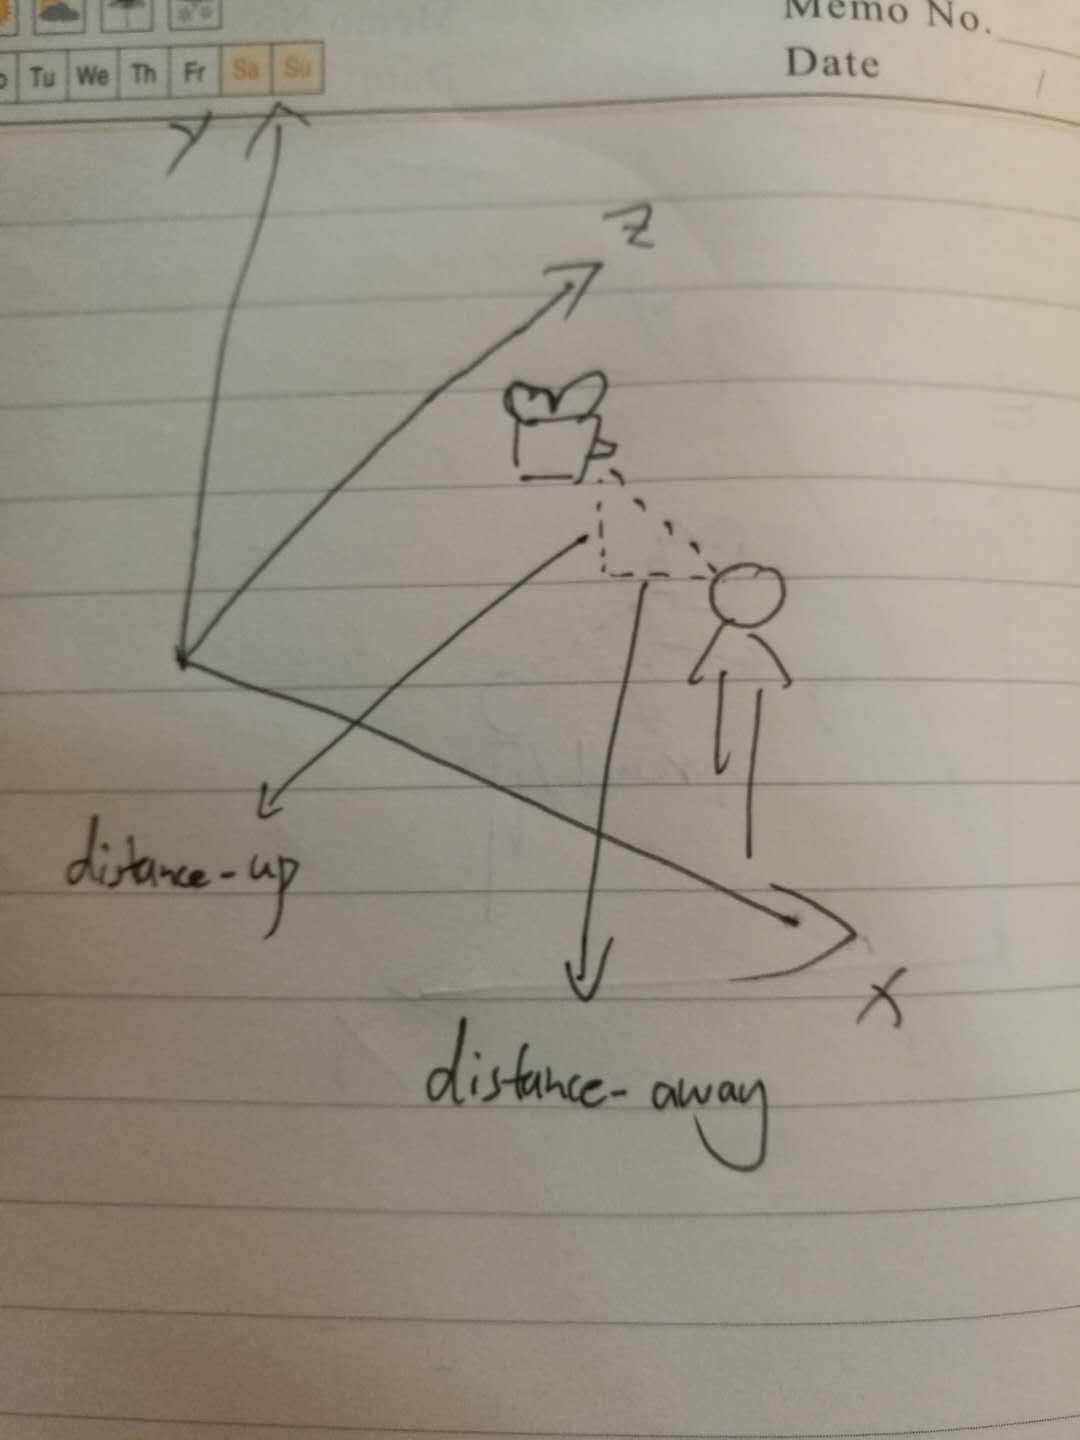 Memo No.
Tu We Th Fr Sa Su
Date
Y
Z
distance-up
X
distance-away